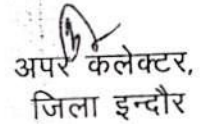 अपर कलेक्टर,
जिला इन्दौर